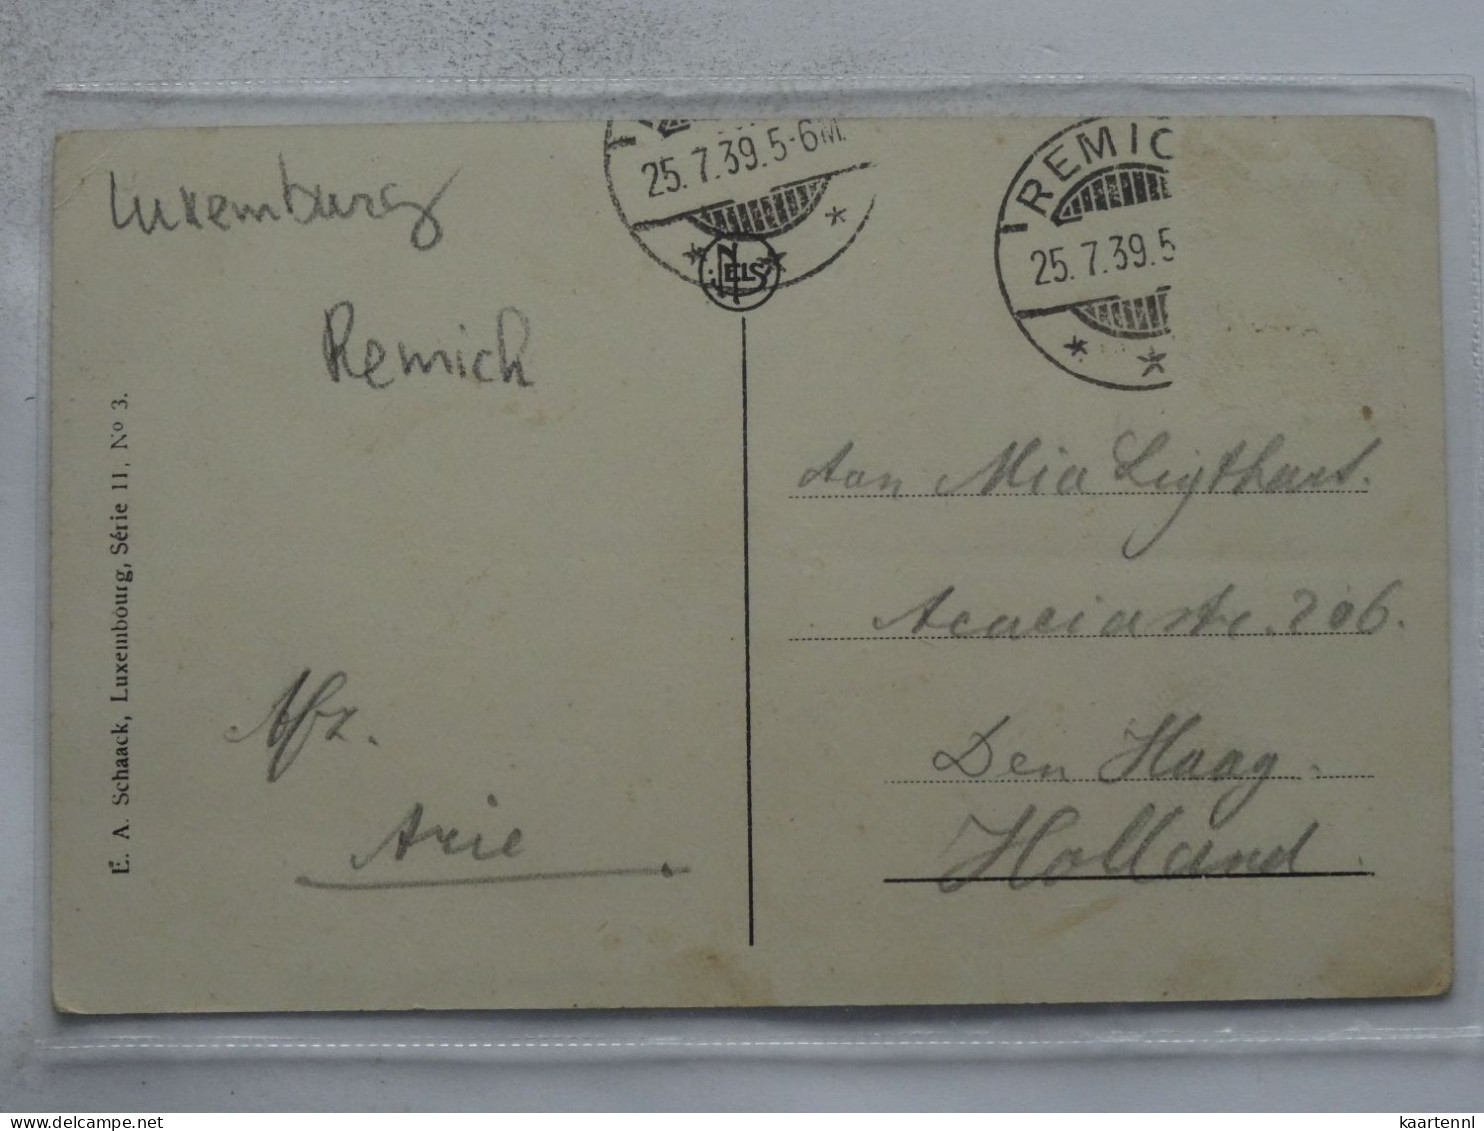 Luxemburg
Remich
25.7.39.5-6M.
REMIC
25.7.39.5
NELS
E. A. Schaack, Luxembourg, Série 11, No 3.
Afz.
Arie
Aan Mia Ligthart.
Acaciastr. 206.
Den Haag.
Holland.
delcampe.net
kaartennl